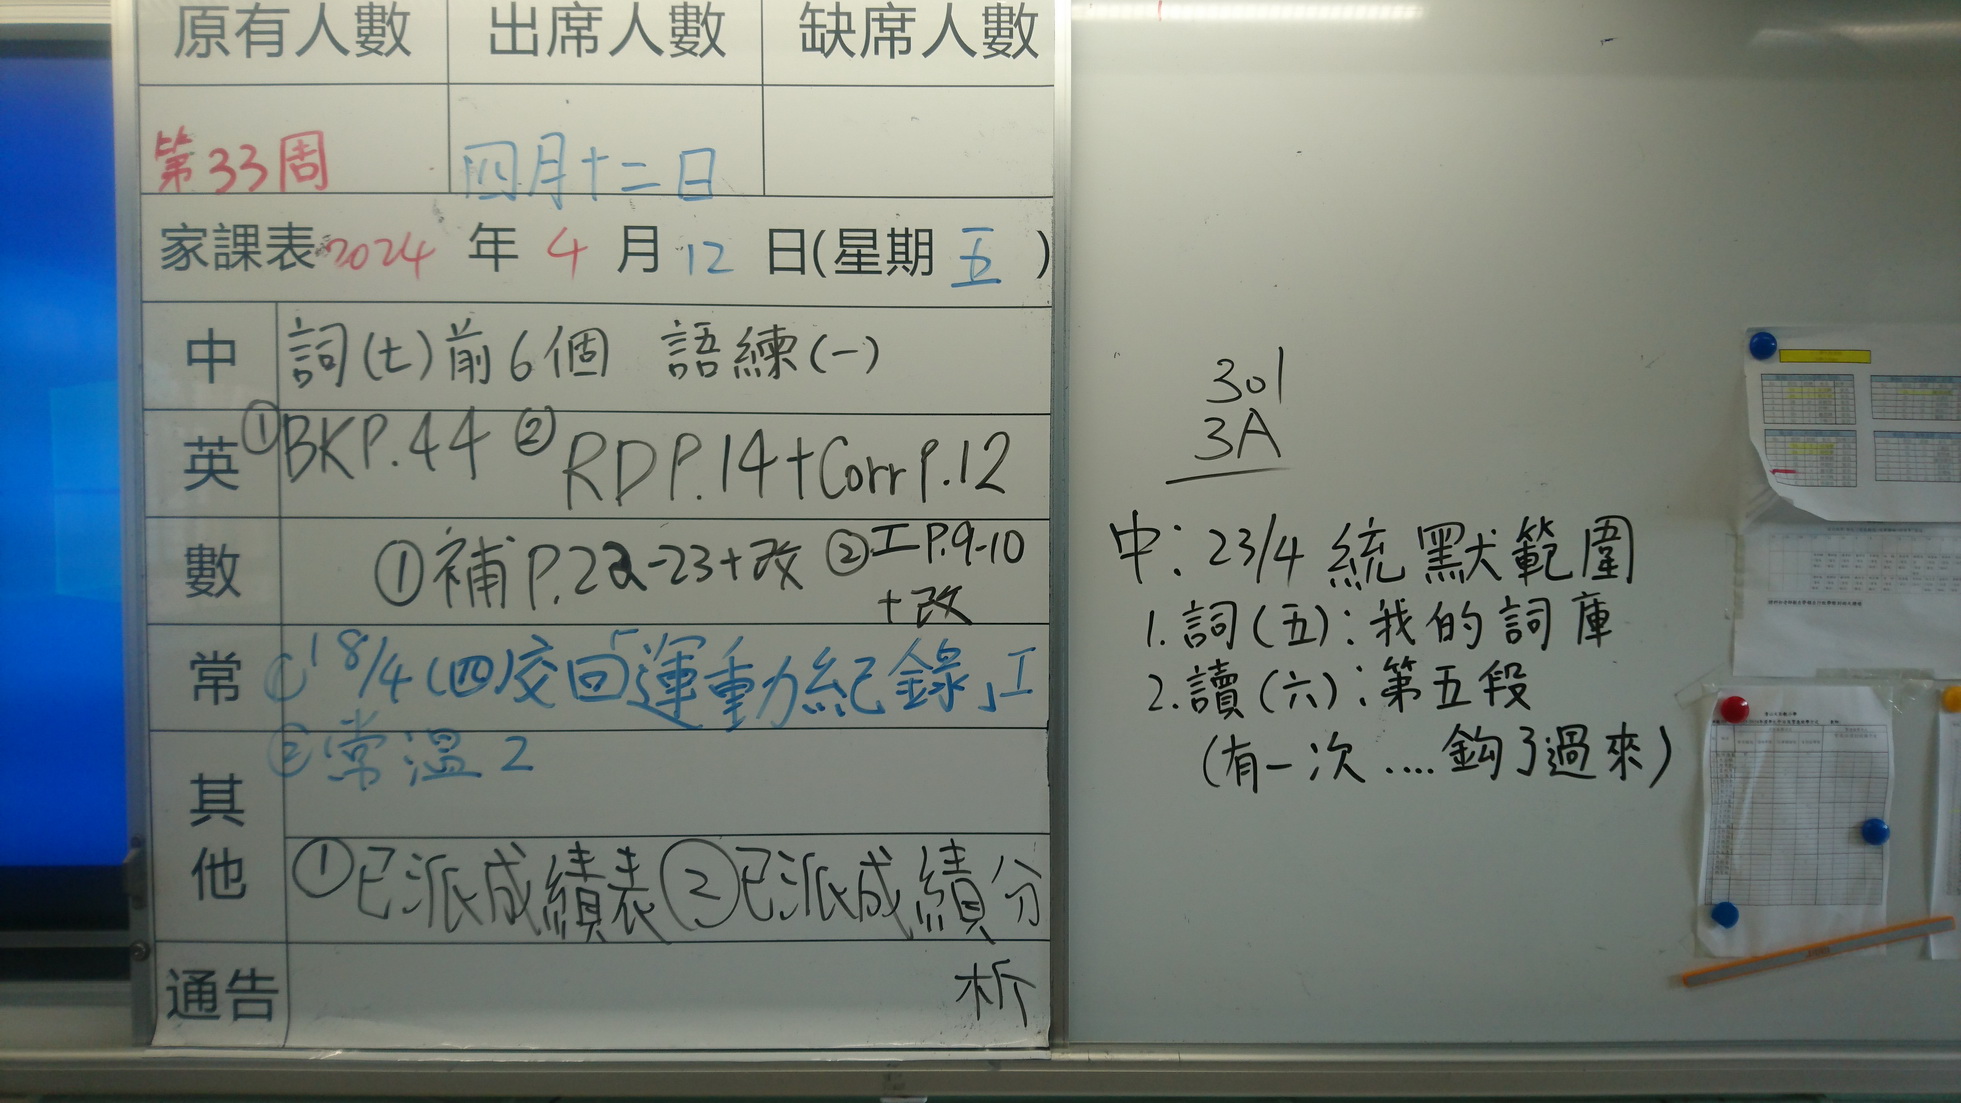 原有人數 出席人數 缺席人數
第33周 四月十二日
家課表 2024 年 4 月 12 日(星期 五 )
中 詞(七)前6個 語練(一)
英 ①BKP.44 ②RDP.14+Corr P.12
數 ①補P.22-23+改 ②工P.9-10
+改
常 ①18/4(四)交回「運動紀錄」工
②常溫2
其他 ①已派成績表②已派成績分
析
通告
301
3A
中: 23/4 統默範圍
1.詞(五):我的詞庫
2.讀(六):第五段
(有一次....鈎了過來)